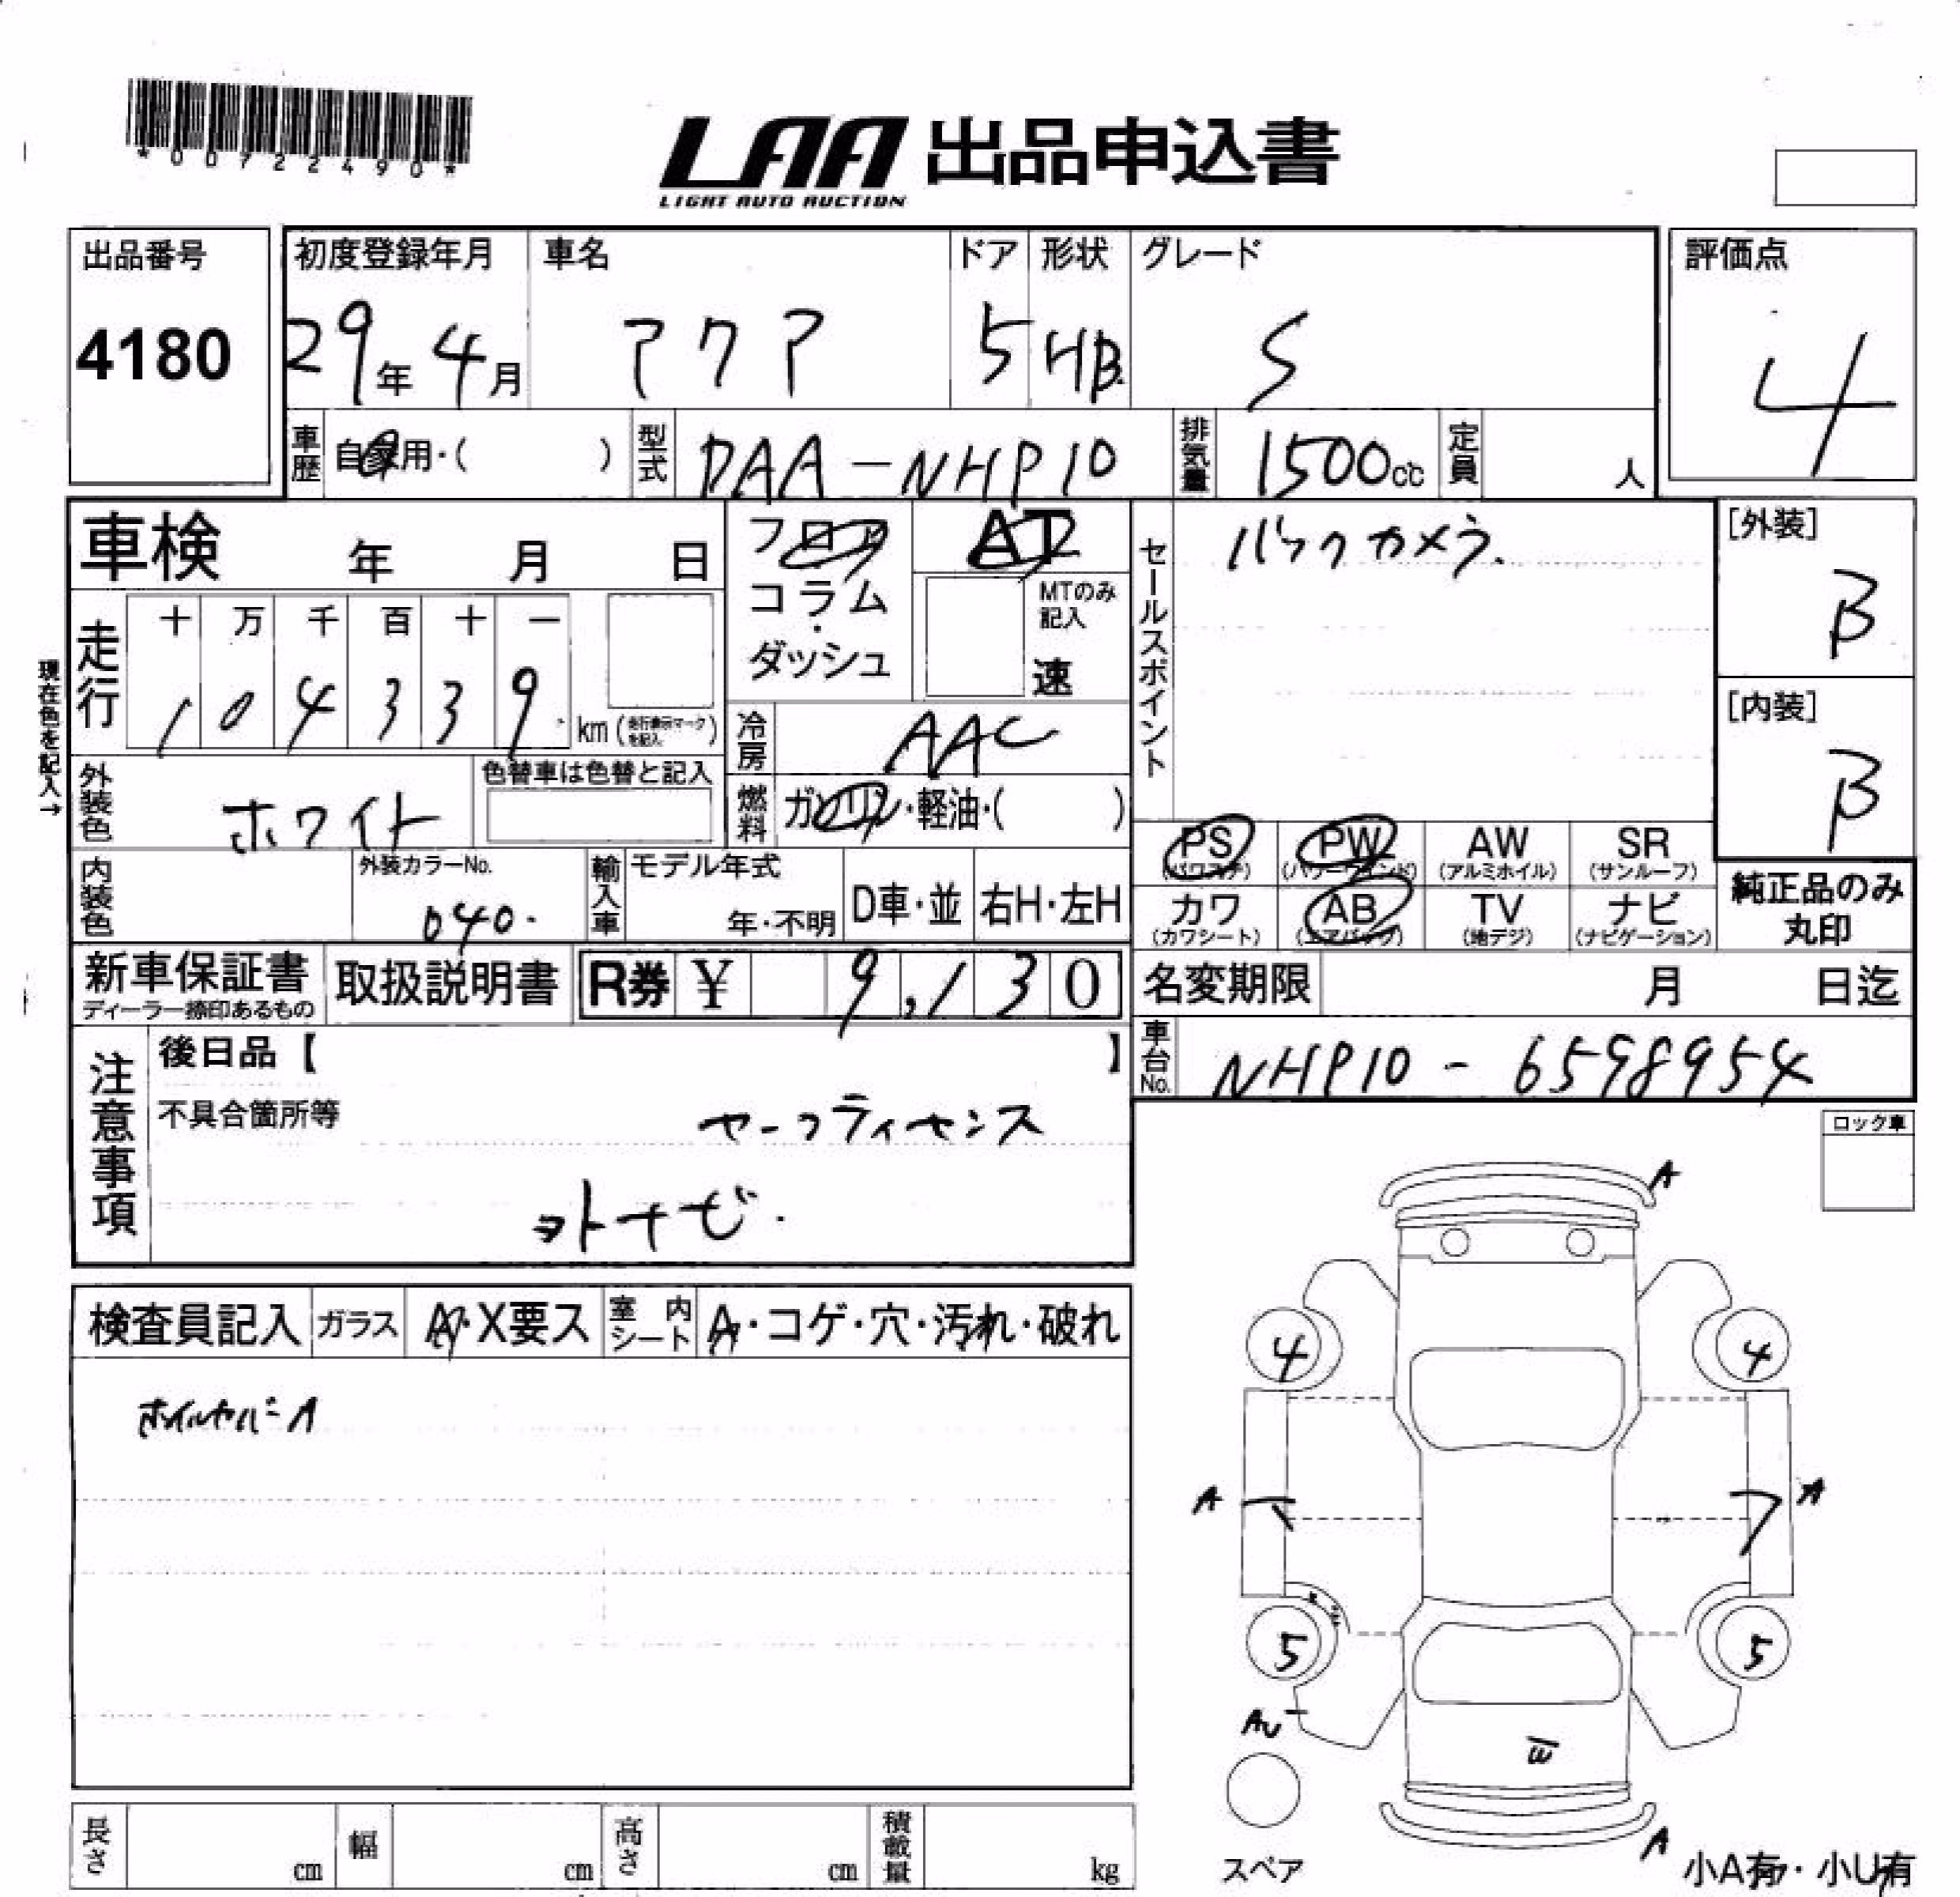 *00722490*
LAA 出品申込書
LIGHT AUTO AUCTION
出品番号
4180
初度登録年月
29年 4月
車名
アクア
ドア
5
形状
HB
グレード
S
評価点
4
車歴
自家用・( )
型式
DAA-NHP10
排気量
1500cc
定員
人
車検 年 月 日
フロア
コラム
・
ダッシュ
AT
MTのみ
記入
速
セールスポイント
バックカメラ.
[外装]
B
[内装]
B
現在色を記入→
走行
十 万 千 百 十 一
1 0 4 3 3 9
km (走行表示マークを記入)
冷房
AAC
燃料
ガソリン・軽油・( )
外装色
ホワイト
色替車は色替と記入
内装色
外装カラーNo.
040.
輸入車
モデル年式
年・不明
D車・並
右H・左H
PS
(パワステ)
PW
(パワーウインド)
AW
(アルミホイル)
SR
(サンルーフ)
カワ
(カワシート)
AB
(エアバック)
TV
(地デジ)
ナビ
(ナビゲーション)
純正品のみ
丸印
新車保証書
ディーラー捺印あるもの
取扱説明書
R券 ¥ 9,130
名変期限 月 日迄
車台No.
NHP10-6598954
注意事項
後日品【 】
不具合箇所等
セーフティセンス
ヨトナビ.
ロック車
検査員記入
ガラス
A・X要ス
室内シート
A・コゲ・穴・汚れ・破れ
ホイルカバーA
A
4
4
A
A
5
5
AU
W
A
スペア
小A有・小U有
長さ cm
幅 cm
高さ cm
積載量 kg